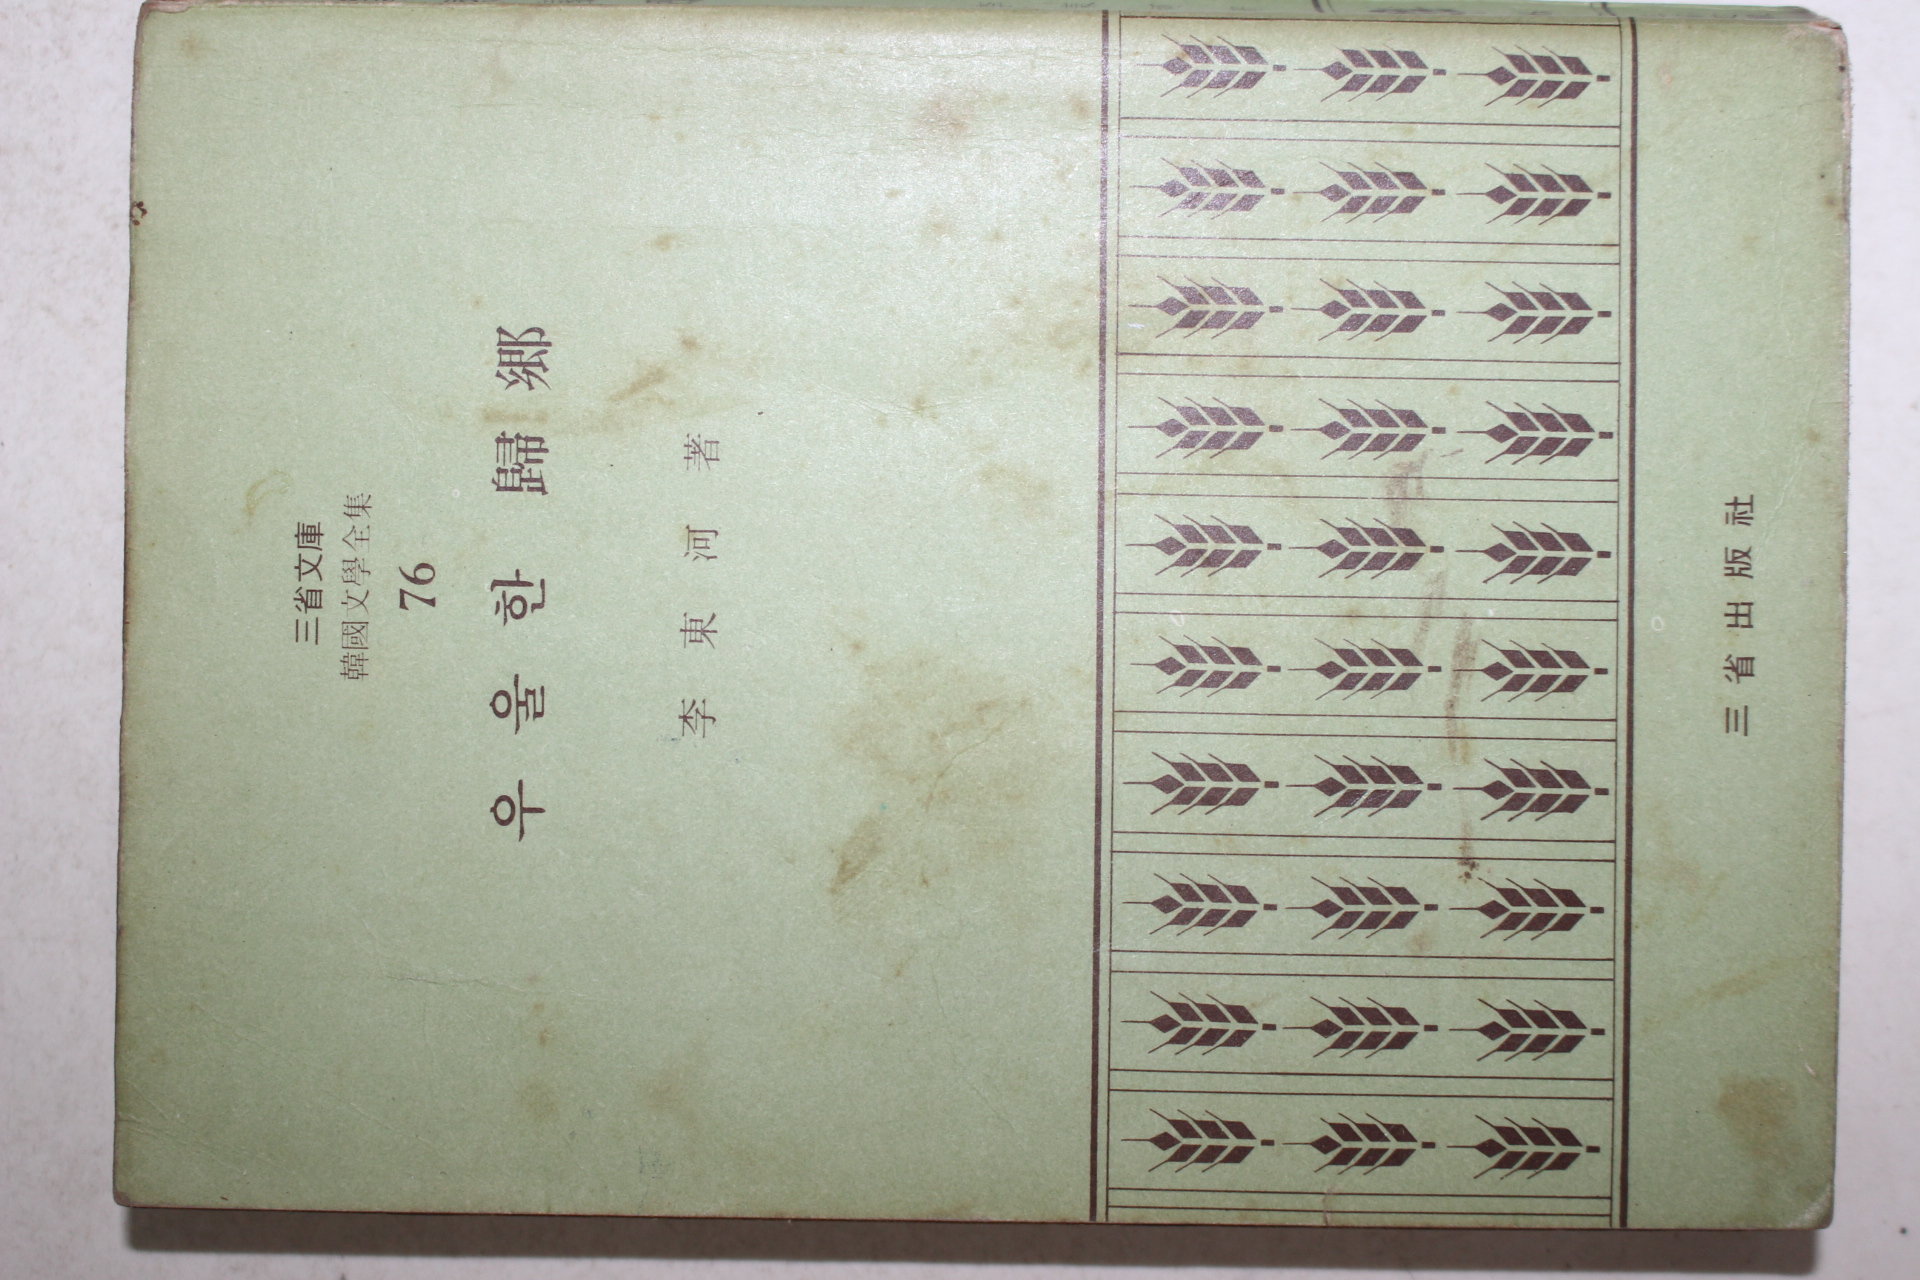 三省文庫
韓國文學全集
76
우울한 歸鄕
李東河 著
三省出版社